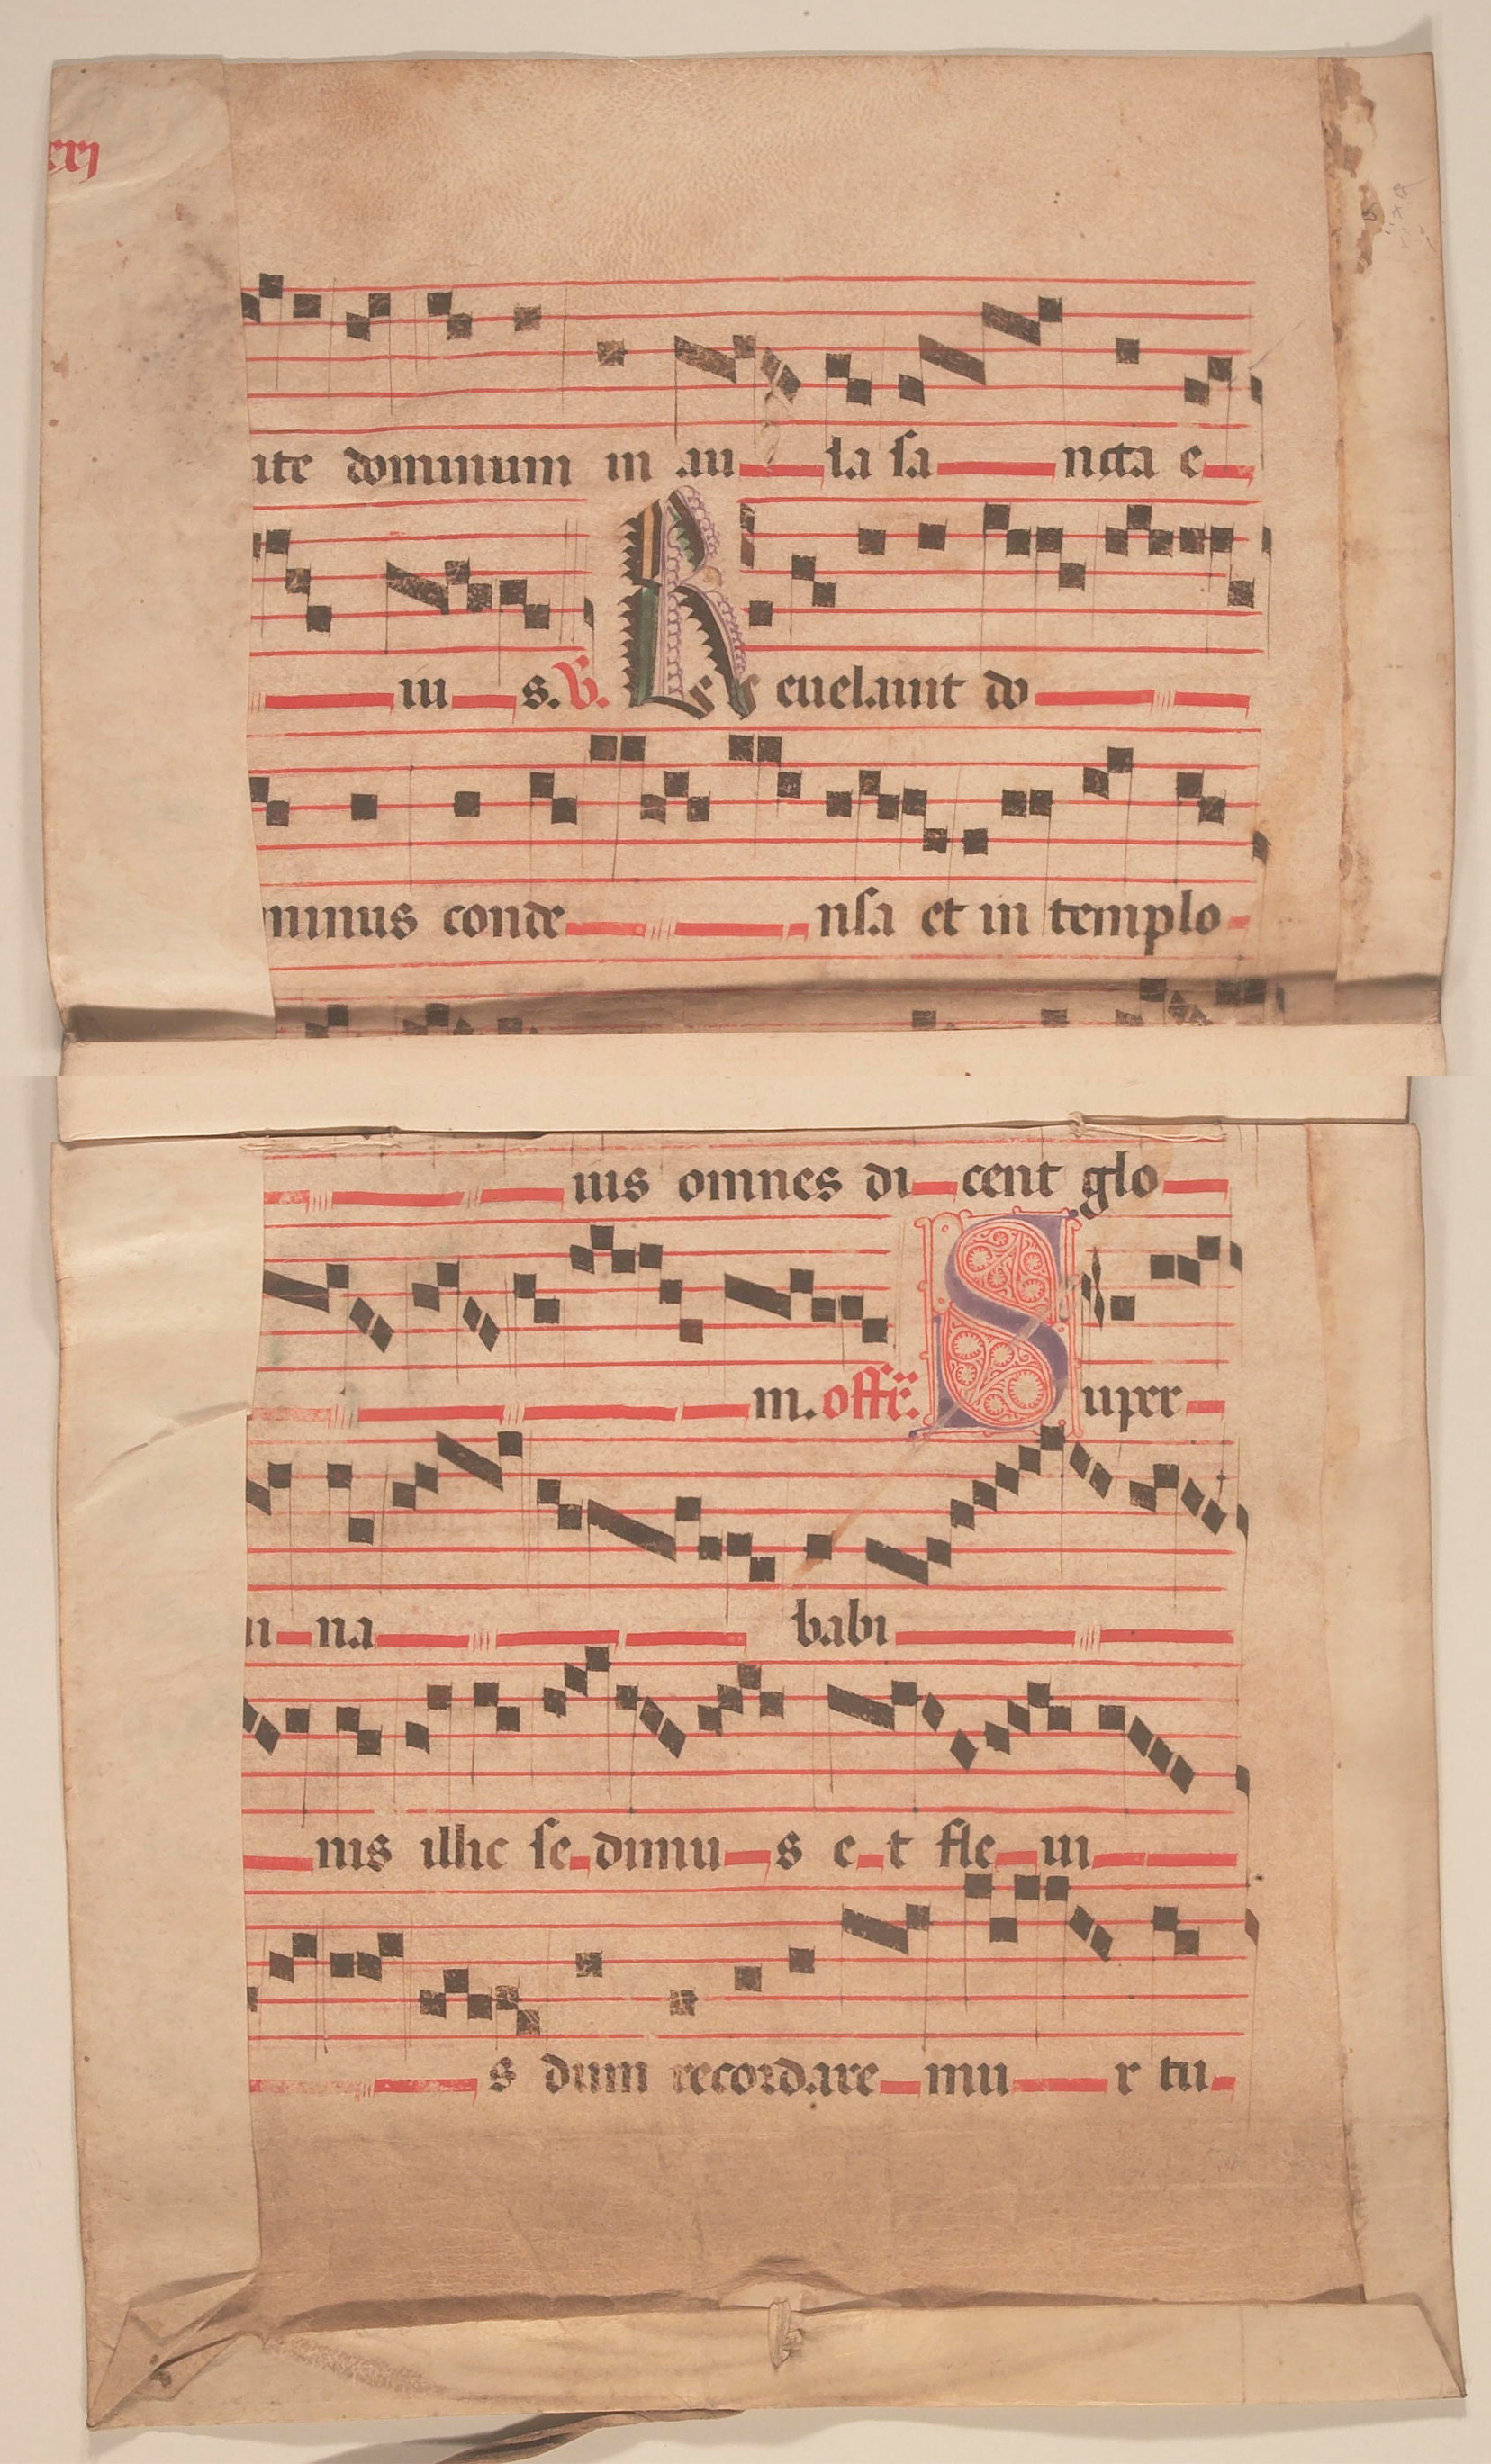 xxj
ite dominum in au la sa ncta e
iu s. V. Re euelauit do
minus conde nsa et in templo
ius omnes di cent glo
m. offr. S uper
mi na babi
nis illic se dimu s e t fle ui
s dum recordare mu r tu